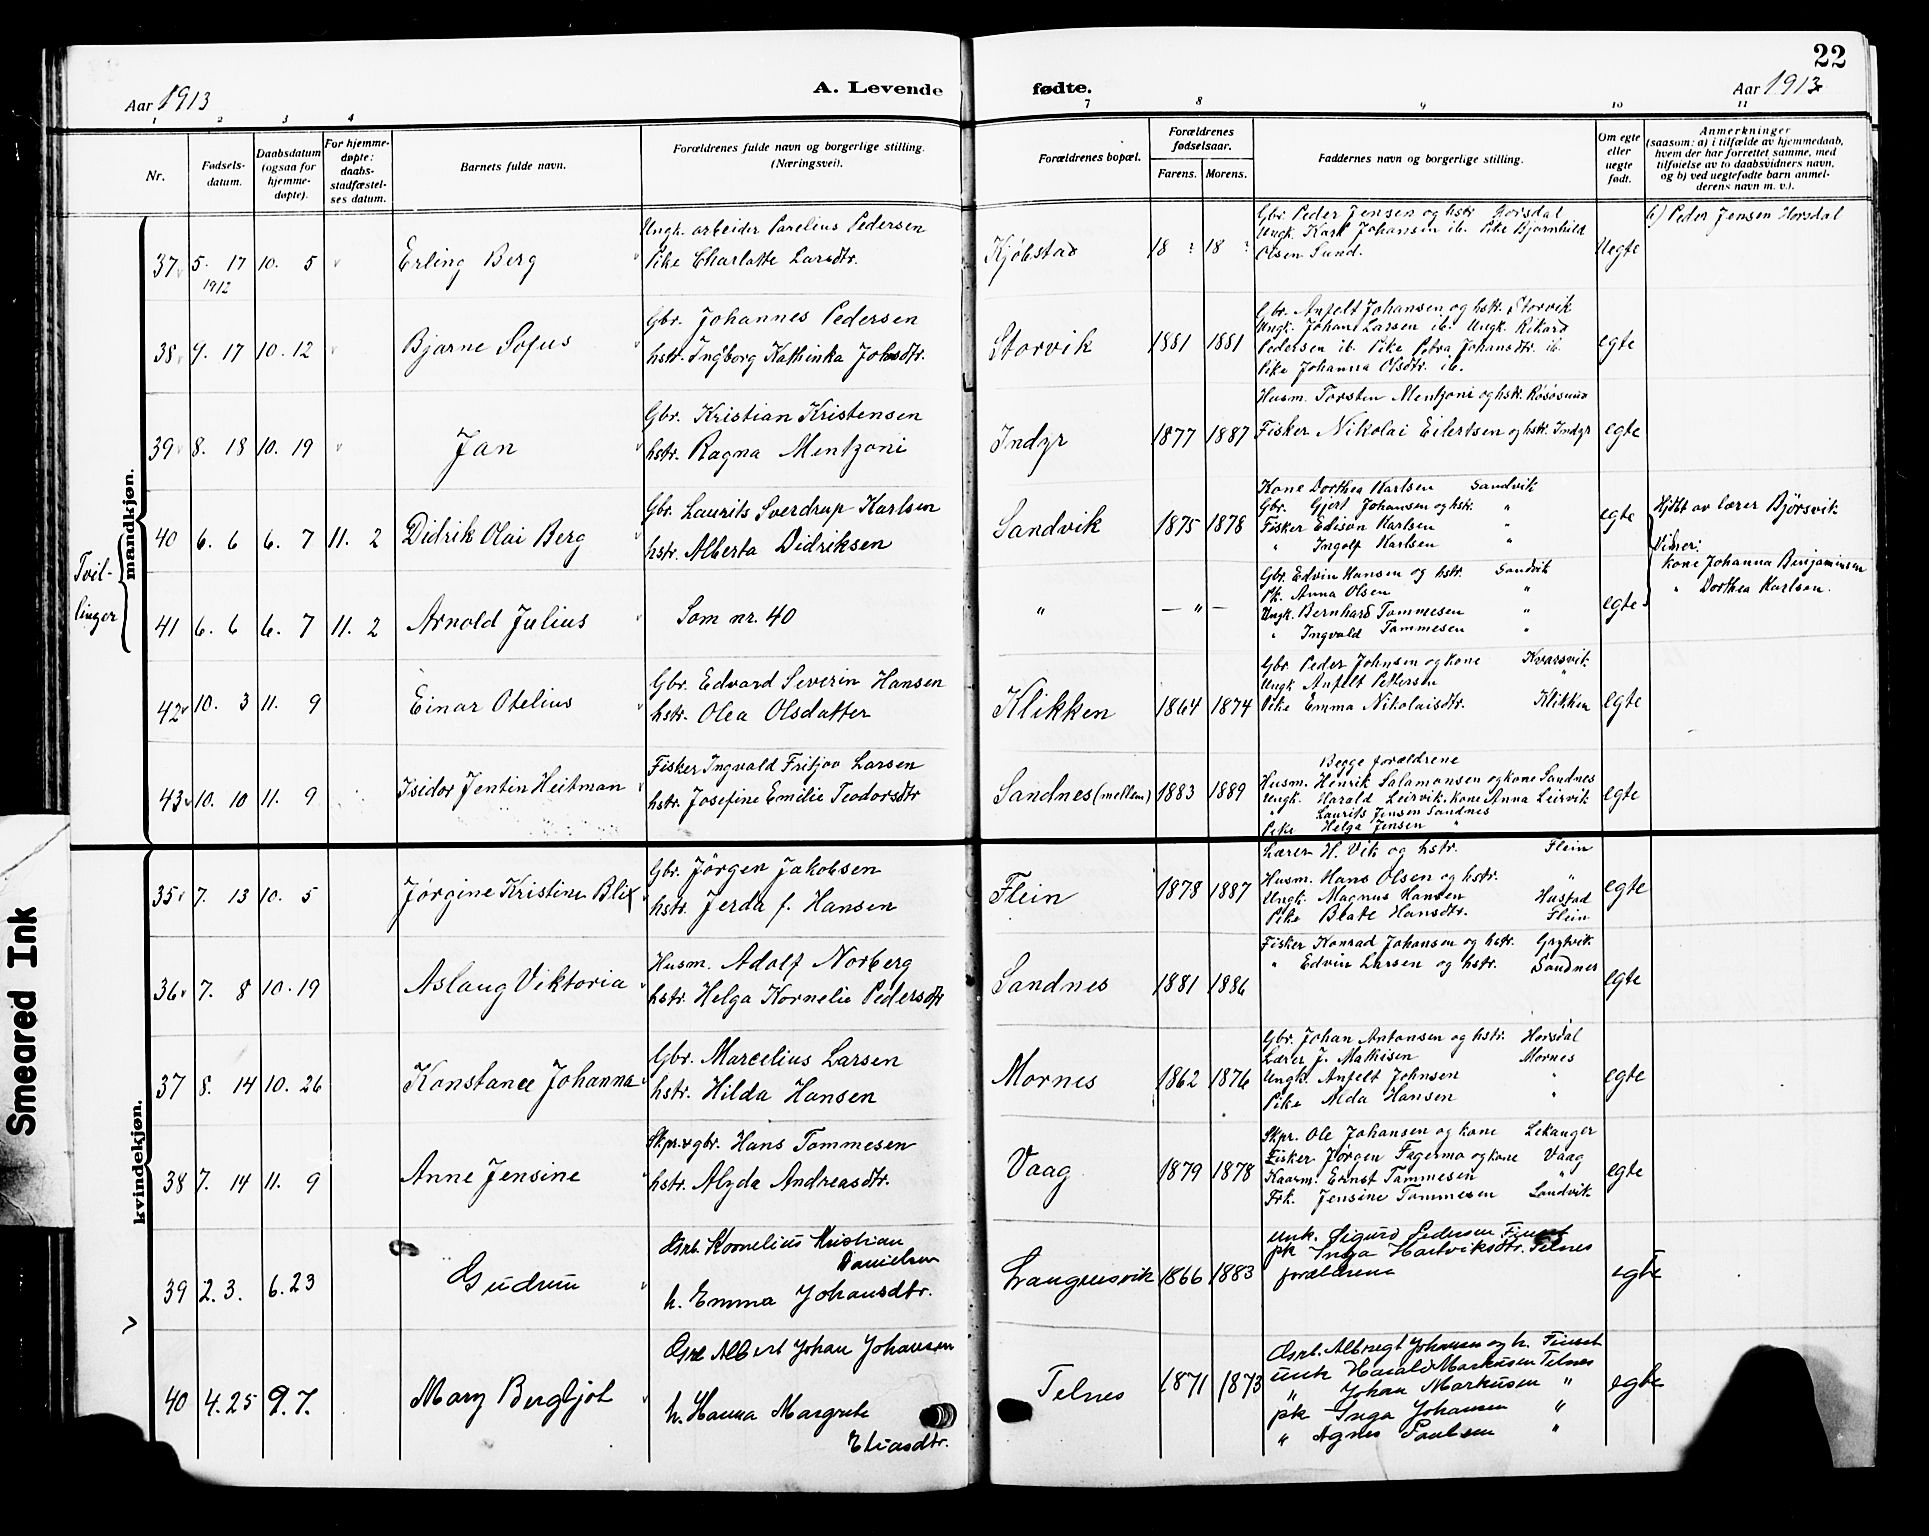 22
Aar 1913
A. Levende fødte.
Aar 1913
1 2 3 4 7 8 9 10 11
Nr.
Fødsels-
datum.
Daabsdatum
(ogsaa for
hjemme-
døpte).
For hjemme-
døpte:
daabs-
stadfæstel-
ses datum.
Barnets fulde navn.
Forældrenes fulde navn og borgerlige stilling.
(Næringsvei).
Forældrenes bopæl.
Forældrenes
fødselsaar.
Farens. Morens.
Faddernes navn og borgerlige stilling.
Om egte
eller
uegte
født.
Anmerkninger
(saasom: a) i tilfælde av hjemmedaab,
hvem der har forrettet samme, med
tilføielse av to daabsvidners navn,
og b) ved uegtefødte barn anmel-
derens navn m. v.).
mandkjøn.
37 5. 17 10. 5 Erling Berg
1912
Ungk. arbeider Parelius Pedersen
Pike Charlotte Larsdtr.
Kjøbstad 18 ? 18 ?
Gbr. Peder Jensen og hstr Horsdal
Ungk. Karl Johansen ib. Pike Bjarnhild
Olsen Sund.
Uegte
b) Peder Jensen Horsdal
38 9. 17 10. 12 Bjarne Sofus
Gbr. Johannes Pedersen
hstr. Ingborg Kathinka Johsdtr.
Storvik 1881 1881
Gbr. Anfelt Johansen og hstr. Storvik
Ungk. Johan Larsen ib. Ungk. Rikard
Pedersen ib. Pike Petra Johansdtr. ib.
Pike Johanna Olsdtr. ib.
egte
39 8. 18 10. 19 Jan
Gbr. Kristian Kristensen
hstr. Ragna Mentzoni
Indyr 1877 1887
Husm. Torsten Mentzoni og hsk. Røsøsund
Fisker Nikolai Eilertsen og hstr. Indyr
egte
Tvil-
linger
40 6. 6 6. 7 11. 2 Didrik Olai Berg
Gbr. Laurits Sverdrup Karlsen
hstr. Alberta Didriksen
Sandvik 1875 1878
Kone Dorthea Karlsen Sandvik
Gbr. Gjert Johansen og hstr. "
Fisker Edison Karlsen "
" Ingolf Karlsen "
egte
Hjdbt av lærer Bjørsvik
Vidner:
Kone Johanna Benjaminsen
" Dorthea Karlsen.
41 6. 6 6. 7 11. 2 Arnold Julius
Som nr. 40
" — " —
Gbr. Edvin Hansen og hstr. Sandvik
Pk. Anna Olsen "
Ungk. Bernhard Tommesen "
" Ingvald Tommesen "
egte
42 10. 3 11. 9 Einar Otelius
Gbr. Edvard Severin Hansen
hstr. Olea Olsdatter
Klikken 1864 1874
Gbr. Peder Johnsen og kone Kvarsvik
Ungk Anfelt Pettersen "
Pike Emma Nikolaisdtr. Klikken
egte
43 10. 10 11. 9 Isidor Jentin Heitman
Fisker Ingvald Fritjov Larsen
hstr. Josefine Emilie Teodorsdtr
Sandnes (mellem) 1883 1889
Begge forældrene
Husm. Henrik Salamonsen og kone Sandnes
Ungk. Harald Leirvik. kone Anna Leirvik
" Laurits Jensen Sandnes
Pike Helga Jensen "
egte
kvindekjøn.
35 7. 13 10. 5 Jørgine Kristine Blix
Gbr. Jörgen Jakobsen
hstr. Jerda f. Hansen
Flein 1878 1887
Lærer H. Vik og hstr. Flein
Husm. Hans Olsen og hstr. "
Ungk. Magnus Hansen Hustad
Pike Beate Hansdtr. Flein
egte
36 7. 8 10. 19 Aslaug Viktoria
Husm. Adolf Norberg
hstr. Helga Kornelie Pedersdtr
Sandnes 1881 1886
Fisker Konrad Johansen og hstr.
" Edvin Larsen og hstr. Sandnes
egte
37 8. 14 10. 26 Konstance Johanna
Gbr. Marcelius Larsen
hstr. Hilda Hansen
Mornes 1862 1876
Gbr. Johan Antonsen og hstr. Horsdal
Lærer J. Mathisen Mornes
Ungk. Anfelt Johnsen "
Pike Alda Hansen "
egte
38 7. 14 11. 9 Anne Jensine
Skpr. & gbr. Hans Tommesen
hstr. Alyda Andreasdtr.
Vaag 1879 1878
Skpr. Ole Johansen og kone Lekanger
Fisker Jørgen Fagermo og kone Vaag
Kaarm. Ernst Tommesen "
Frk. Jensine Tommesen Sandvik
egte
39 2. 3. 6. 23 Gudrun
Gsrb. Kornelius Kristian
Danielsen
h. Emma Johansdtr.
Langnesvik 1866 1883
unk. Sigurd Pedersen Finset
pk Inga Hartviksdtr. Telnes
forældrene
egte
40 4. 25 9. 7. Mary Bergljot
Gsrb Albert Johan Johansen
h. Hanna Margrete
Eliasdtr.
Telnes 1871 1873
Gsrb. Albregt Johansen og h. Finset
unk Harald Markusen Telnes
" Johan Markusen "
pk Inga Johansen "
" Agnes Paulsen "
egte
Smeared Ink